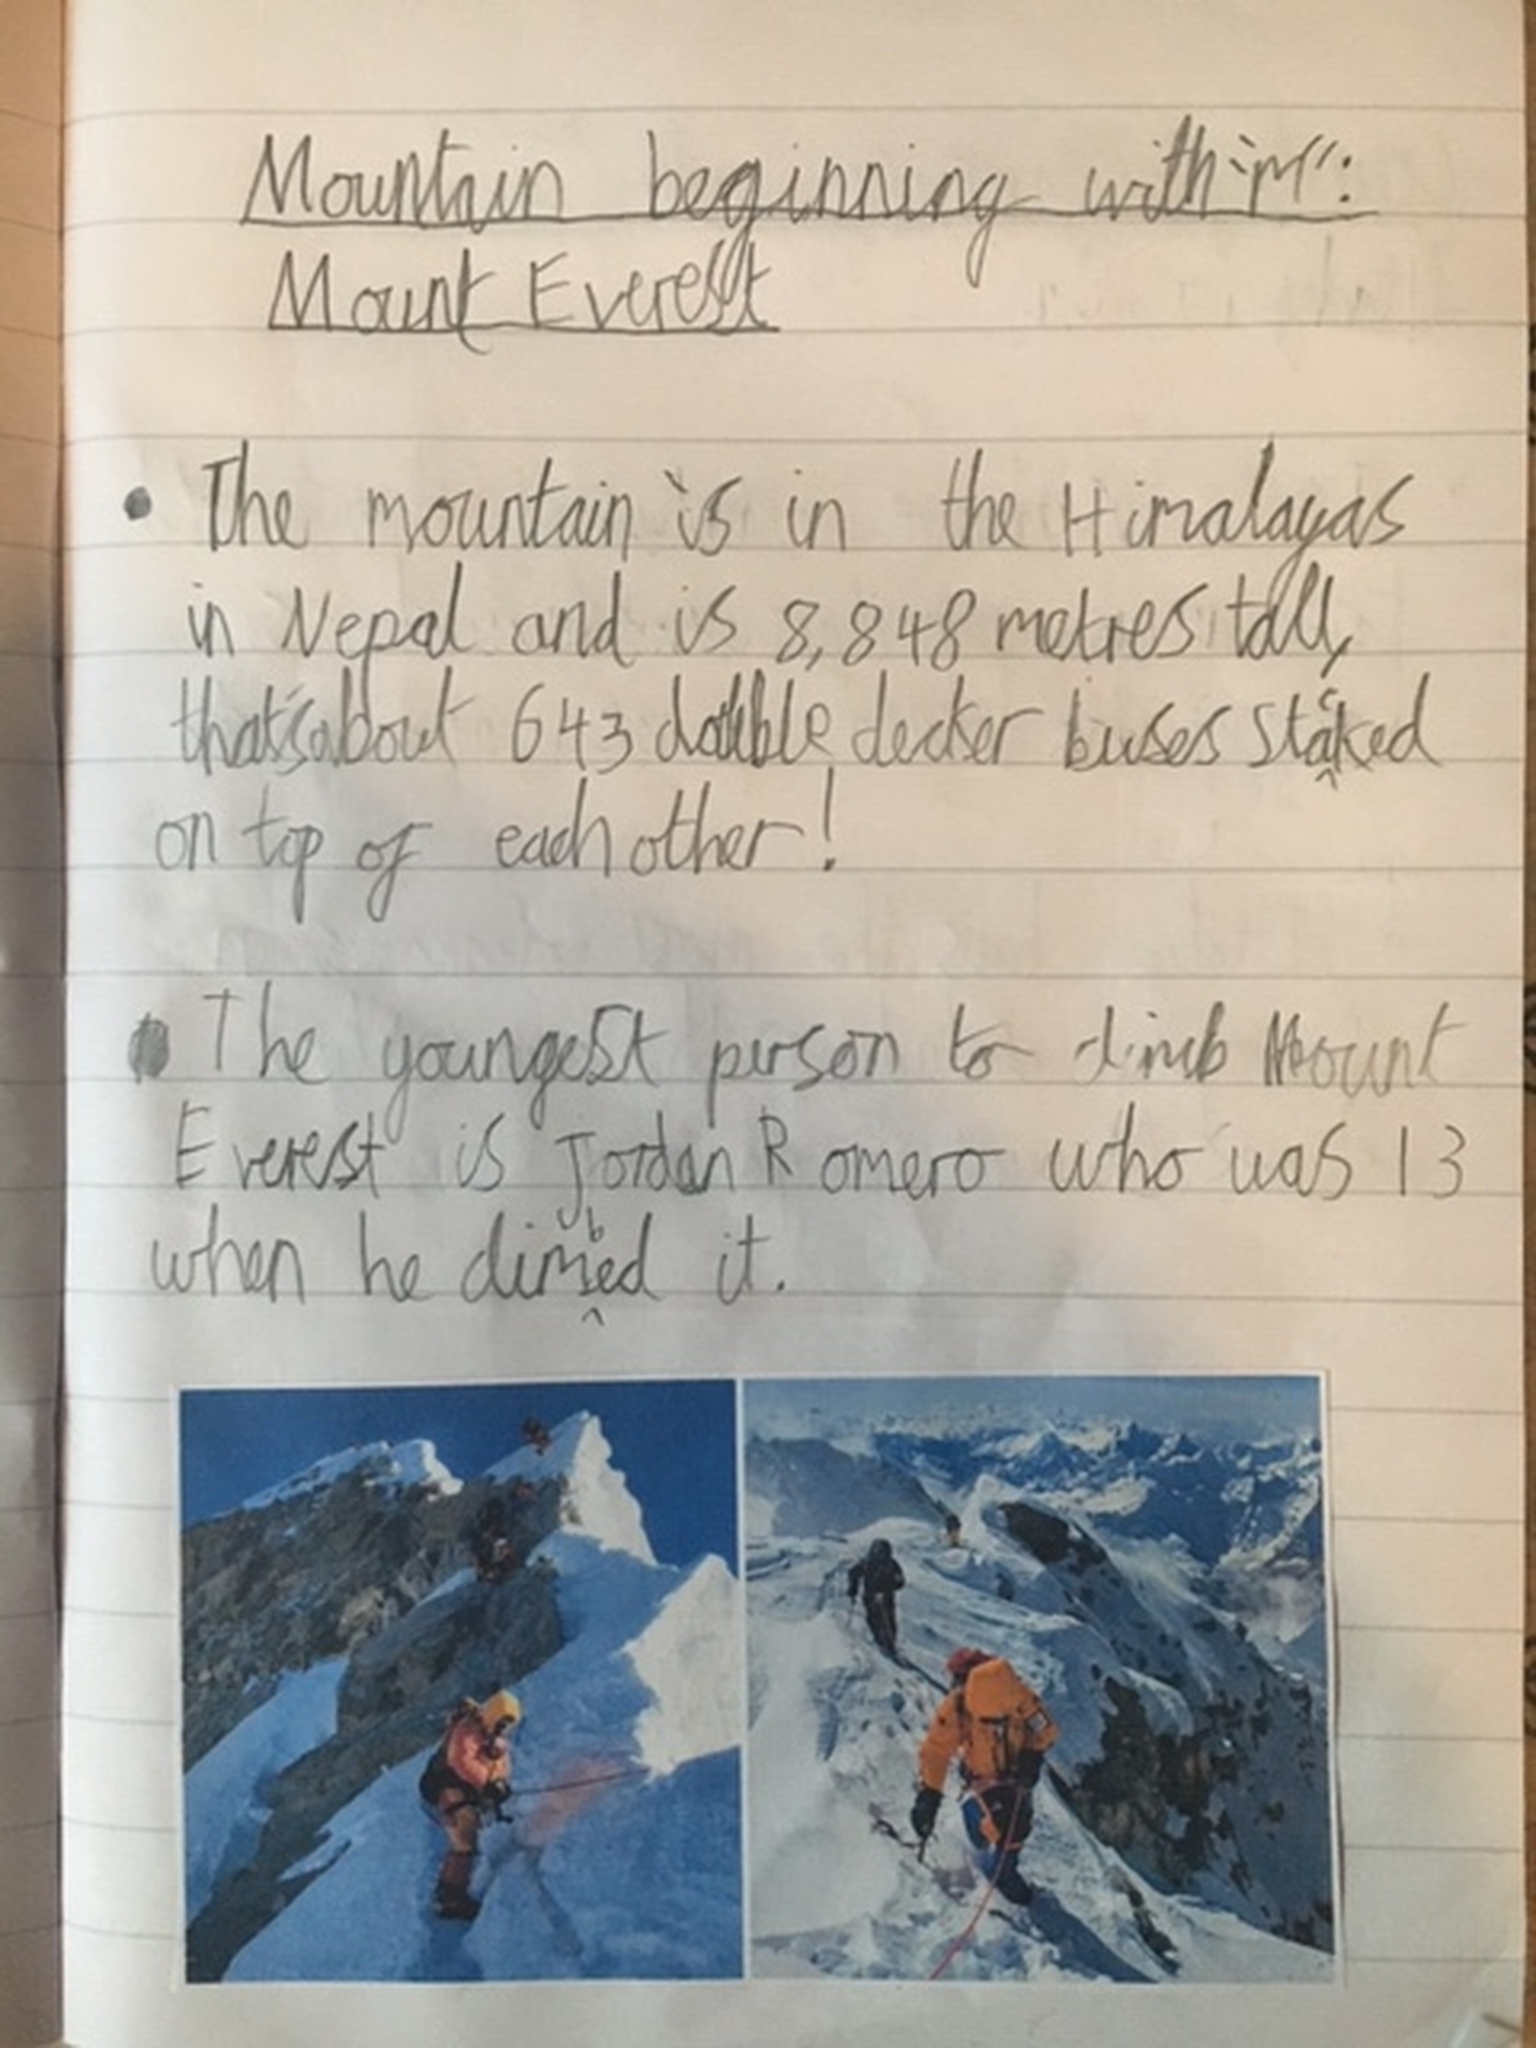 Mountain beginning with "M":
Mount Everest
• The mountain is in the Himalayas
in Nepal and is 8,848 metres tall,
that's about 643 double decker buses stacked
on top of each other!
• The youngest person to climb Mount
Everest is Jordan Romero who was 13
when he climbed it.